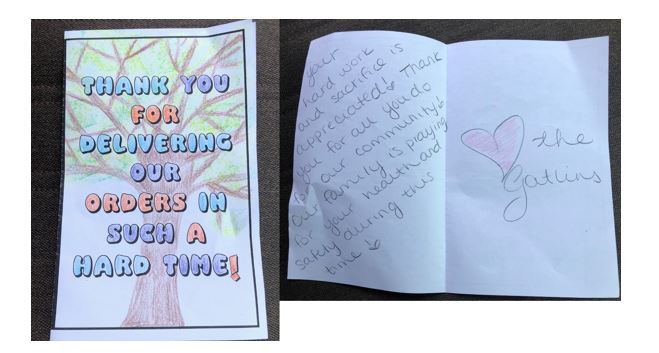 THANK YOU
FOR
DELIVERING
OUR
ORDERS IN
SUCH A
HARD TIME!
your
hard work
and sacrifice is
appreciated! Thank
you for all you do
for our community!
Our family is praying
for your health and
safety during this
time
the
Gatlins